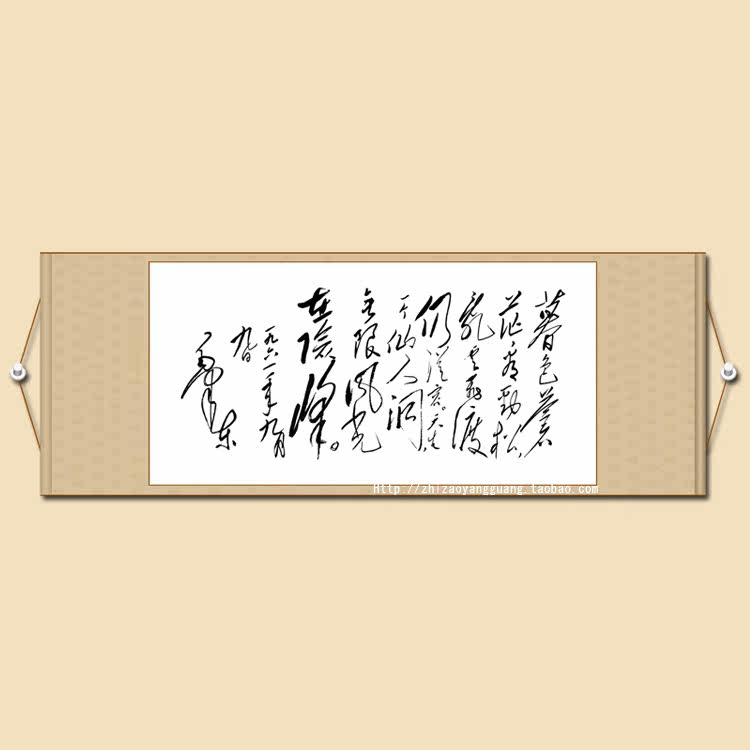 暮色苍
茫看劲松，
乱云飞渡
仍从容。天生
一个仙人洞，
无限风光
在险峰。
一九六一年九月
九日
毛泽东
Http://zhizaoyangguang.taobao.com